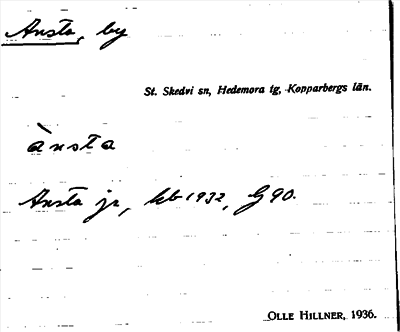 Ansta, by
St. Skedvi sn, Hedemora tg, Kopparbergs län.
ànsta
Ansta jr, kb 1932, G 90.
OLLE HILLNER, 1936.